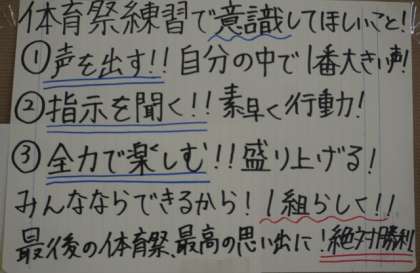 体育祭練習で意識してほしいこと!
①声を出す!!自分の中で1番大きい声!
②指示を聞く!!素早く行動力!
③全力で楽しむ!!盛り上げる!
みんなならできるから!1組らしく!!
最後の体育祭、最高の思い出に!絶対勝利